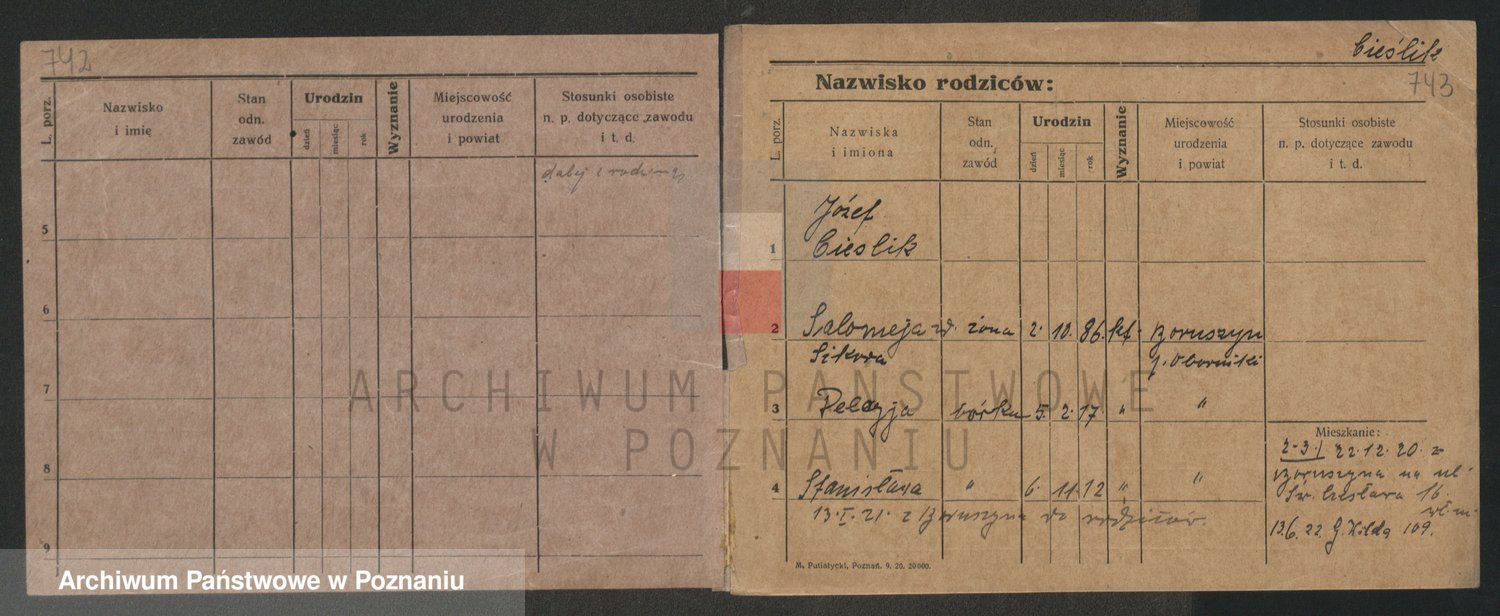 742
L. porz.
Nazwisko
i imię
Stan
odn.
zawód
Urodzin
dzień
miesiąc
rok
Wyznanie
Miejscowość
urodzenia
i powiat
Stosunki osobiste
n. p. dotyczące zawodu
i t. d.
5
6
7
8
9
Cieślik
743
Nazwisko rodziców:
L. porz.
Nazwiska
i imiona
Stan
odn.
zawód
Urodzin
dzień
miesiąc
rok
Wyznanie
Miejscowość
urodzenia
i powiat
Stosunki osobiste
n. p. dotyczące zawodu
i t. d.
1
Józef
Cieslik
2 Salomeja zd. żona 2. 10. 86. kat. Boruszyn
Sikora p. Oborniki
3 Pelagja córka 5. 2. 17 " "
4 Stanisława " 6. 11. 12 " "
13. I. 21. z Boruszyna do rodziców.
Mieszkanie:
2-3.) 22.12.20. z
Boruszyna na ul.
Św. Czesława 16.
13.6.22. G. Wilda 109.
M. Putiatycki, Poznań. 9. 20. 20000.
ARCHIWUM PAŃSTWOWE
W POZNANIU
Archiwum Państwowe w Poznaniu